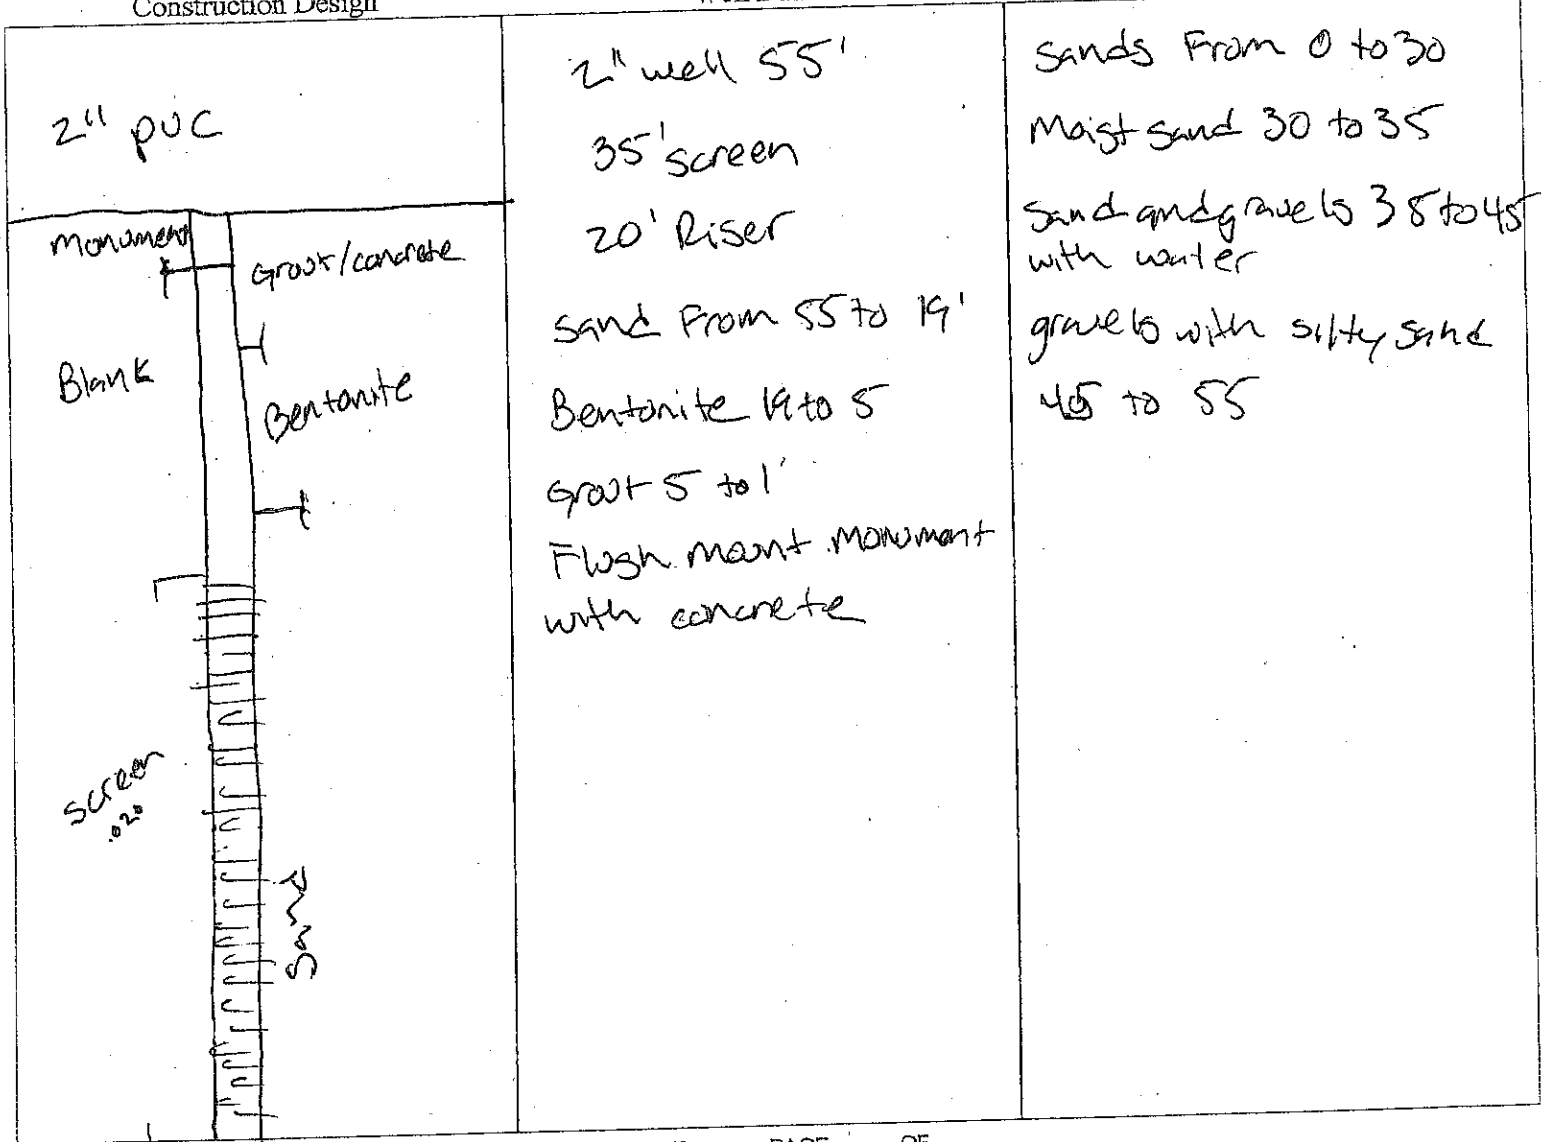 Construction Design
2" PVC
Monument
Grout/concrete
Blank
Bentonite
screen
.020
Sand
2" well 55'
35' screen
20' Riser
Sand From 55 to 19'
Bentonite 19 to 5
Grout 5 to 1'
Flush mount monument
with concrete
Sands From 0 to 30
Moist sand 30 to 35
Sand and gravels 35 to 45
with water
gravels with silty sand
45 to 55
PAGE OF